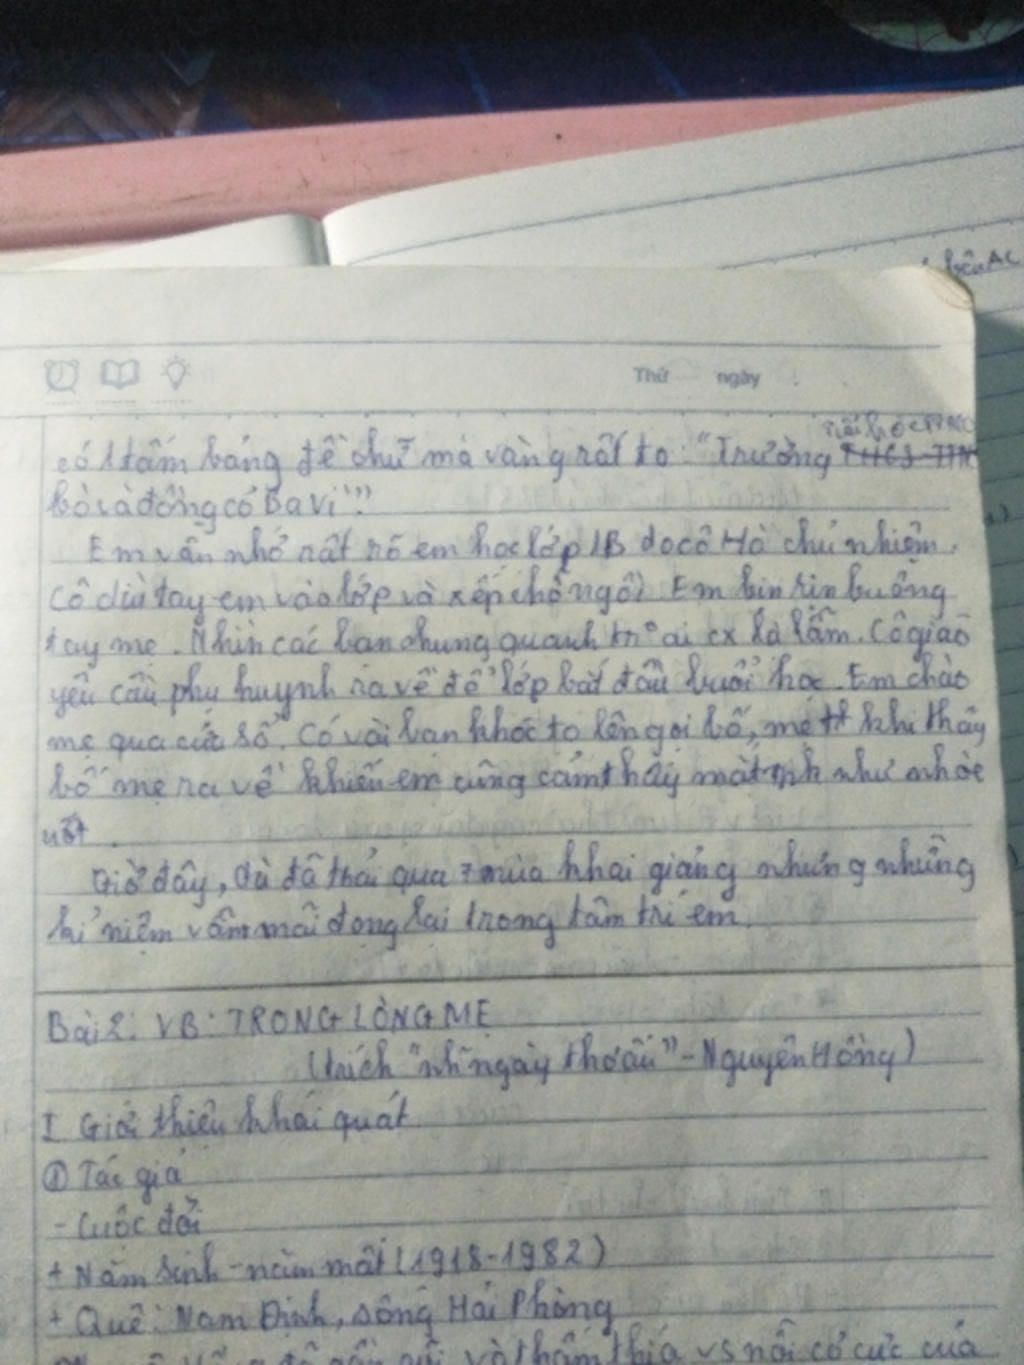 bên AC
Thứ ngày
nổi học
có 1 tấm bảng đề chữ mà vàng rất to: "Trường THCS TTN
bò và đồng cỏ Ba Vì".
Em vẫn nhớ rất rõ em học lớp 1B do cô Hà chủ nhiệm.
Cô dìu tay em vào lớp và xếp chỗ ngồi. Em bịn rịn buông
tay mẹ. Nhìn các bạn chung quanh tr° ai cx lạ lẫm. Cô giáo
yêu cầu phụ huynh ra về để lớp bắt đầu buổi học. Em chào
mẹ qua cửa sổ. Có vài bạn khóc to lên gọi bố, mẹ khi thấy
bố mẹ ra về khiến em cũng cảm thấy mắt mk như nhòe
ướt.
Giờ đây, dù đã trải qua 7 mùa khai giảng nhưng những
kỉ niệm vẫn mãi đọng lại trong tâm trí em.
Bài 2: VB: TRONG LÒNG MẸ
(trích "nh~ ngày thơ ấu" - Nguyên Hồng)
I Giới thiệu khái quát
① Tác giả
- Cuộc đời
+ Năm sinh - năm mất (1918-1982)
+ Quê: Nam Định, sống Hải Phòng
gần gũi và thấm thía vs nỗi cơ cực của